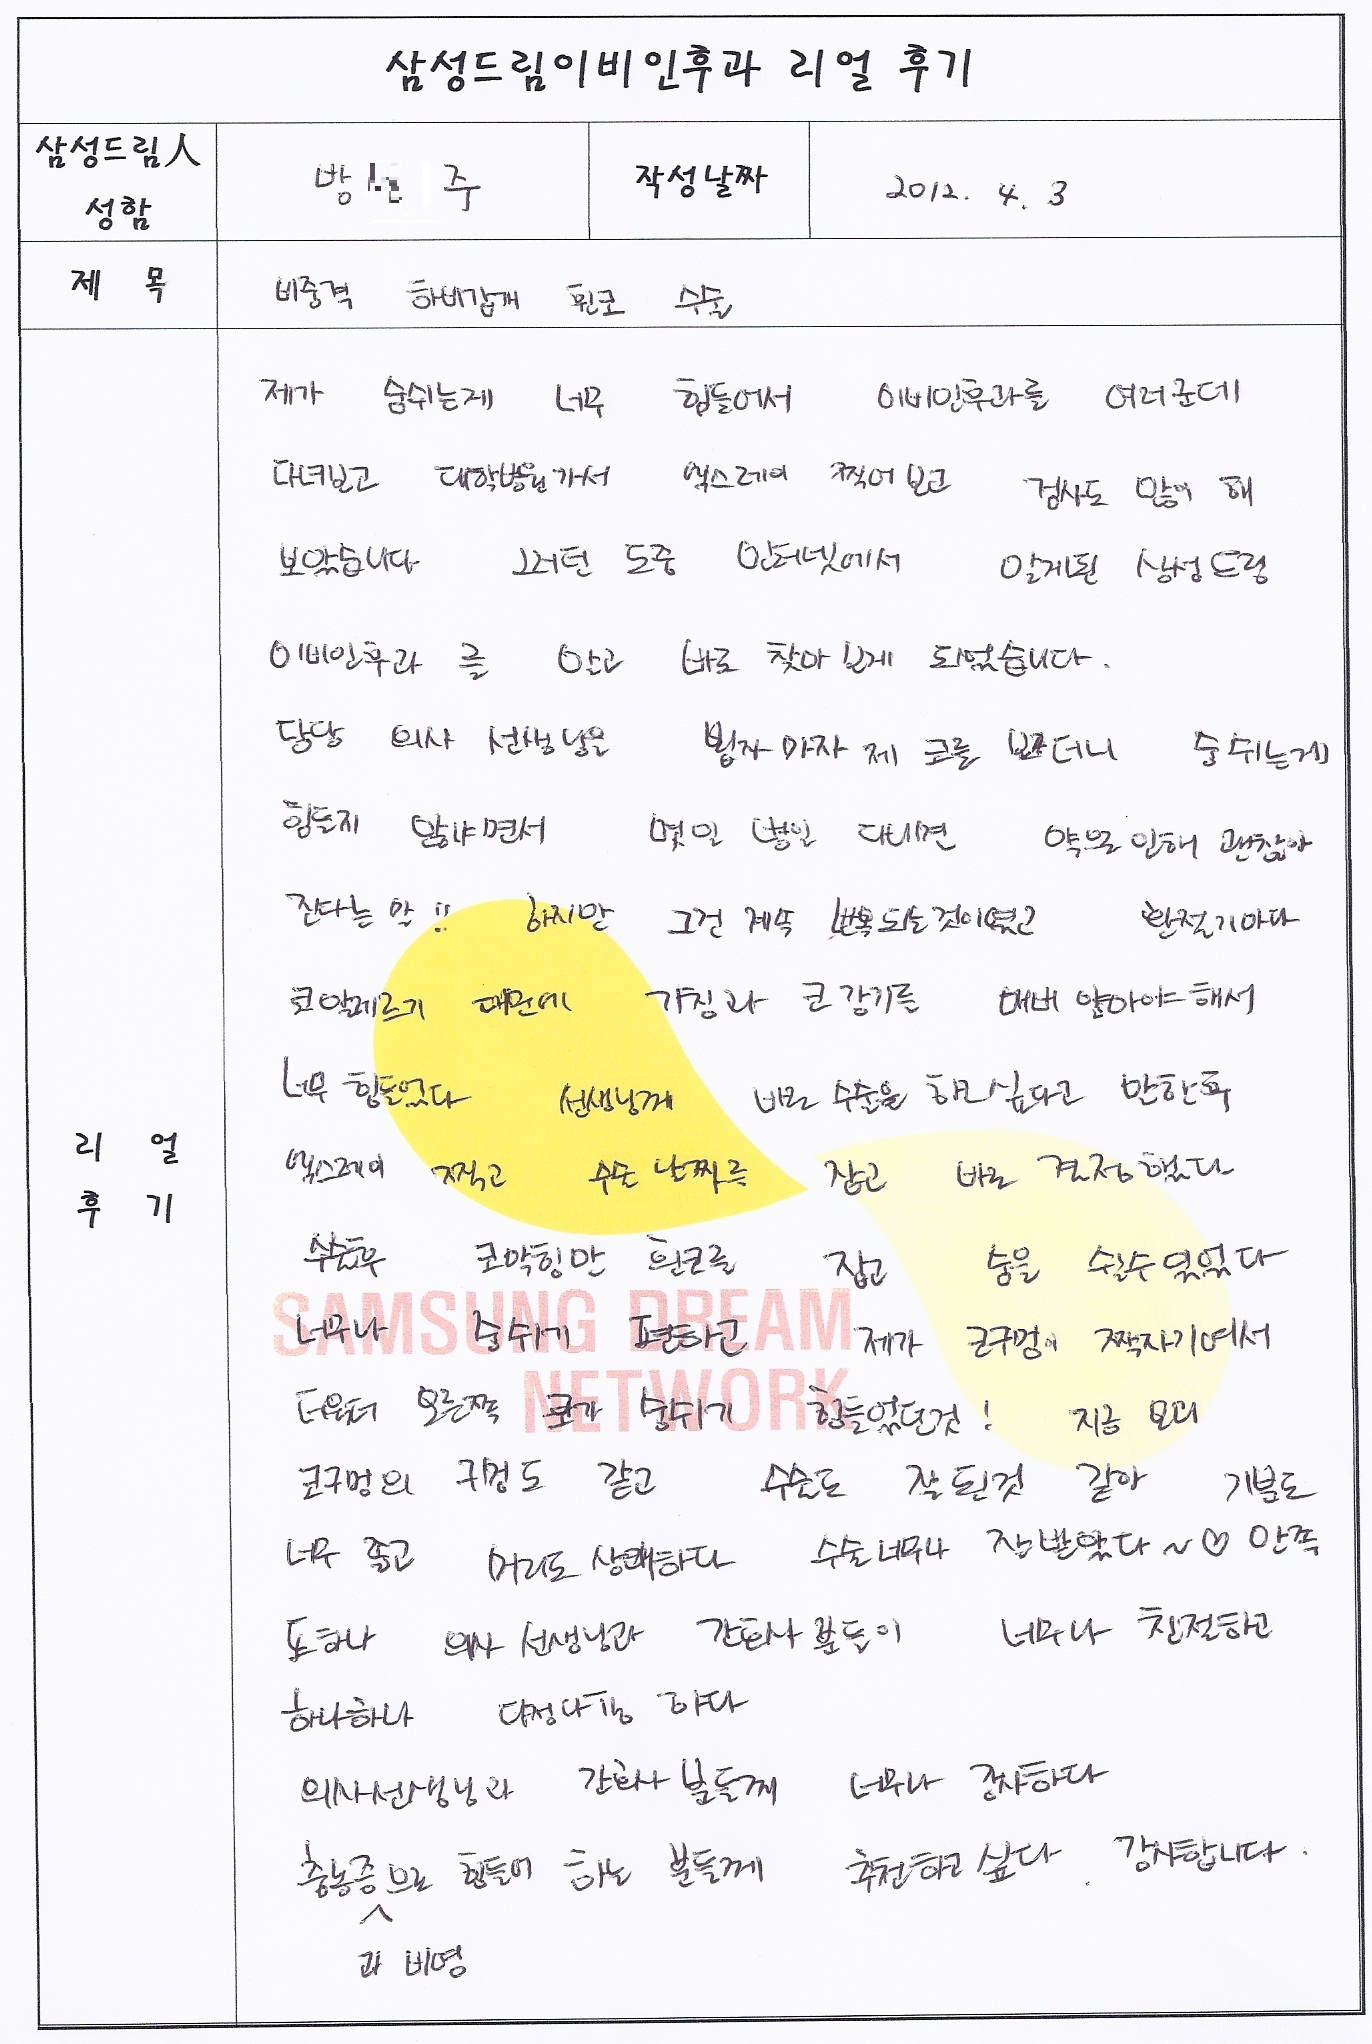 삼성드림이비인후과 리얼 후기
삼성드림人 성함
방 주
작성날짜
2012. 4. 3
제 목
비중격 하비갑개 휜코 수술
리 얼
후 기
제가 숨쉬는게 너무 힘들어서 이비인후과를 여러군데
다녀보고 대학병원가서 엑스레이 찍어보고 검사도 많이 해
보았습니다 그러던 도중 인터넷에서 알게된 삼성드림
이비인후과 를 알고 바로 찾아 보게 되었습니다.
담당 의사 선생님은 보자 마자 제 코를 보더니 숨쉬는게
힘들지 않냐면서 몇일 병원 다니면 약으로 인해 괜찮아
진다는 말!! 하지만 그건 계속 반복되는것이였고 환절기마다
코알레르기 때문에 기침과 코감기를 매번 앓아야 해서
너무 힘들었다 선생님께 바로 수술을 하고 싶다고 말한후
엑스레이 찍고 수술 날짜를 잡고 바로 결정했다
수술후 코막힘만 휜코를 잡고 숨을 쉴수 있었다
너무나 숨쉬기 편하고 제가 코구멍이 짝짝이여서
더욱더 오른쪽 코가 숨쉬기 힘들었던것! 지금 모의
코구멍의 구멍도 같고 수술도 잘 된것 같아 기분도
너무 좋고 머리도 상쾌하다 수술 너무나 잘 받았다~♡ 안쪽
또하나 의사 선생님과 간호사 분들이 너무나 친절하고
하나하나 다정다감 하다
의사선생님과 간호사 분들께 너무나 감사하다
축농증으로 힘들어 하는 분들께 추천하고 싶다. 감사합니다.
과 비염
SAMSUNG DREAM
NETWORK